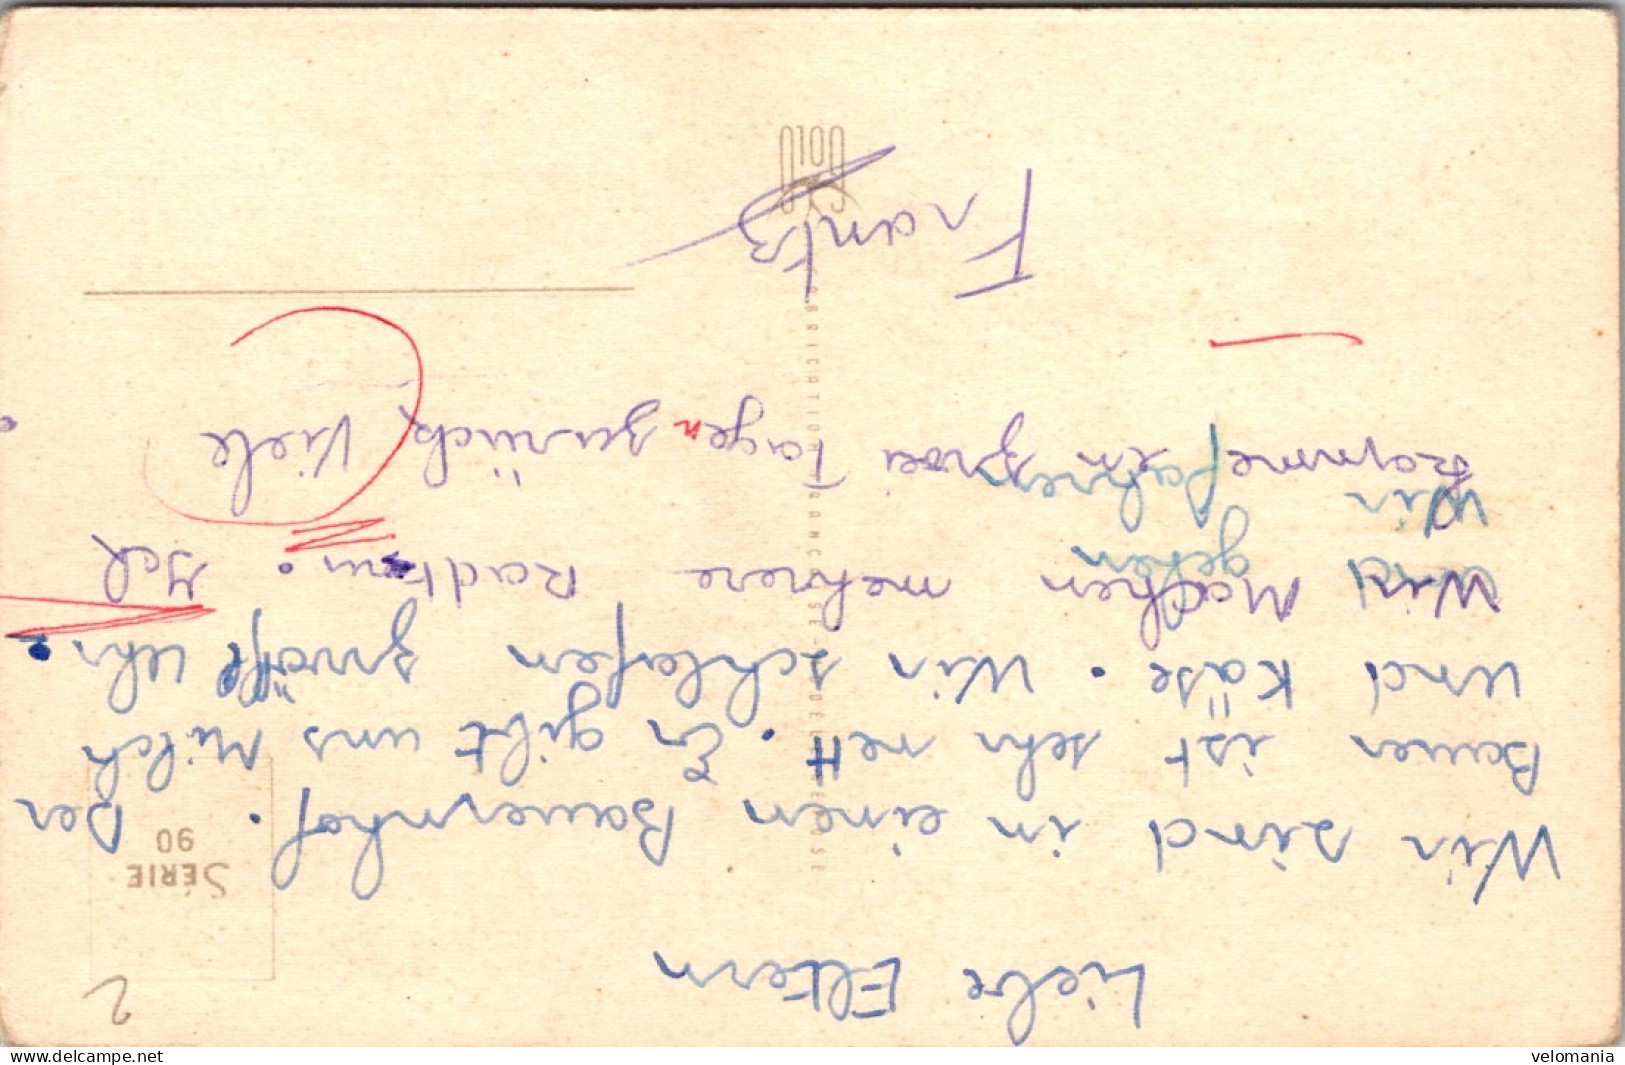 Liebe Eltern
Wir sind in einen Bauernhof. Der
Bauer ist sehr nett. Er gibt uns Milch
und Käse. Wir schlafen zwölf Uhr.
Wir Machen mehrere Radtour. Ich
und gehen
Komme in zwei Tagen zurück, Viele
Wir fahren
Frantz
SÉRIE
90
2
FABRICATION FRANÇAISE
delcampe.net
velomania